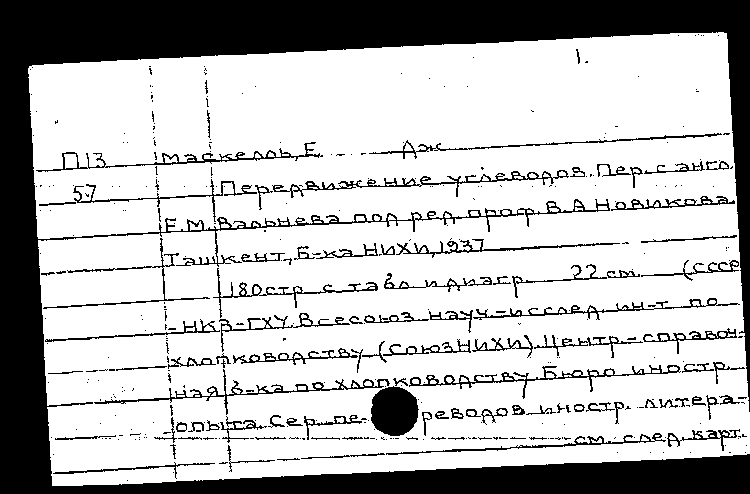 1.
П13 Маскелль, Е. Дж
57 Передвижение углеводов. Пер. с англ.
Е.М. Вальнева под ред. проф. В.А Новикова.
Ташкент, Б-ка НИХИ, 1937
180стр. с табл и диагр. 22 см. (СССР
-НКЗ-ГХУ. Всесоюз науч-исслед. ин-т по
хлопководству (СоюзНИХИ). Центр.-справоч-
ная б-ка по хлопководству. Бюро иностр.
опыта. Сер. пе- реводов иностр. литера-
см. след. карт.